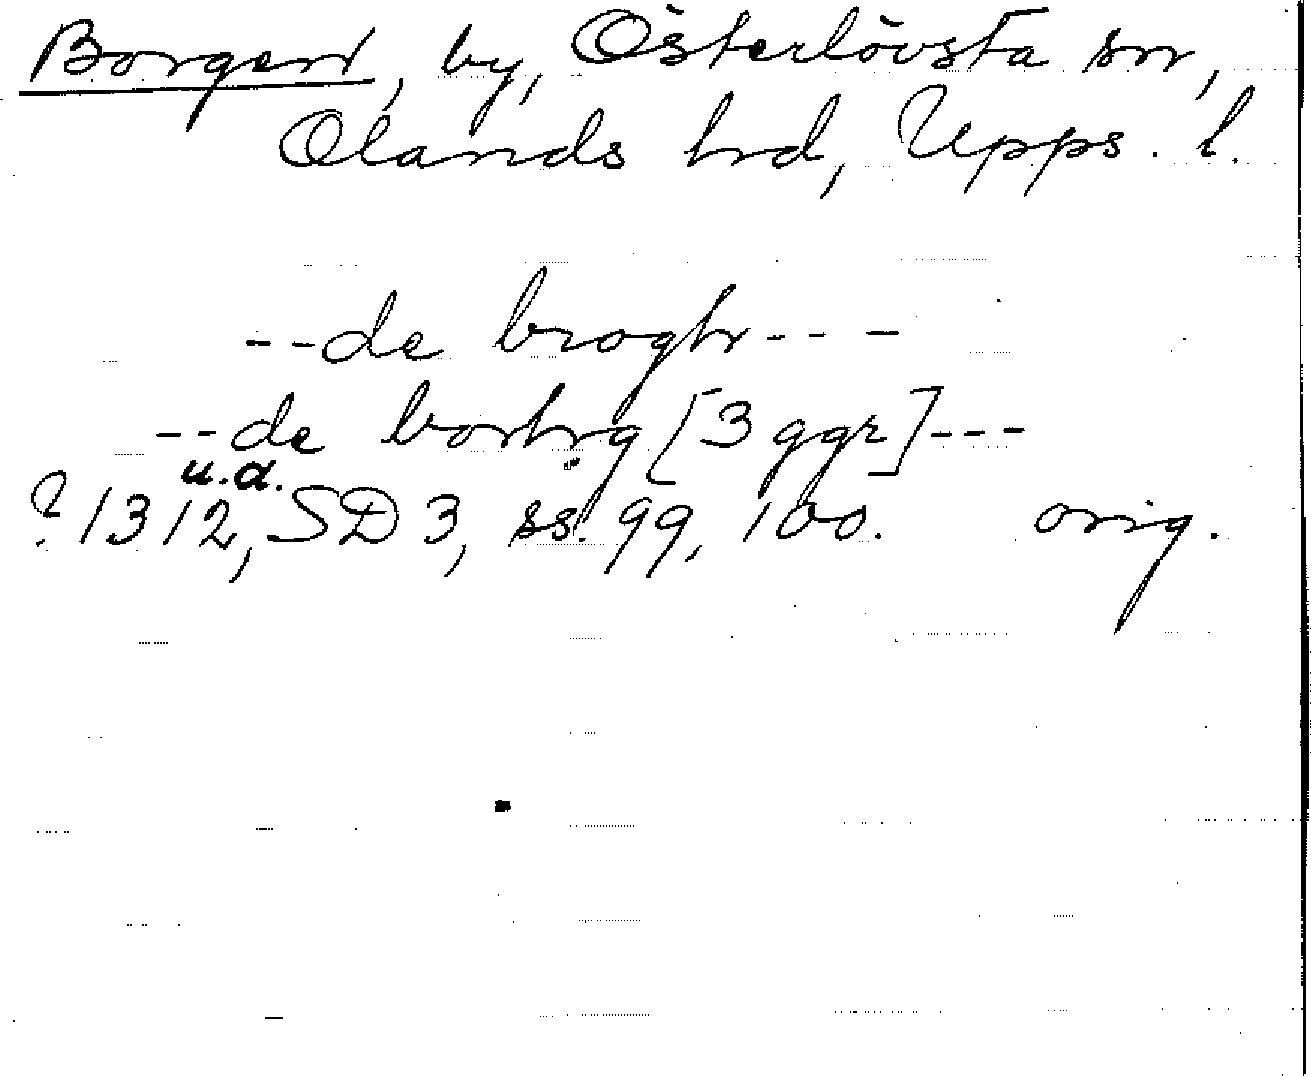 Borgen, by, Österlövsta sn,
Olands hd, Upps. l.
--de broghr---
--de borhrg [3 ggr]---
u.d.
? 1312, SD 3, ss. 99, 100. orig.